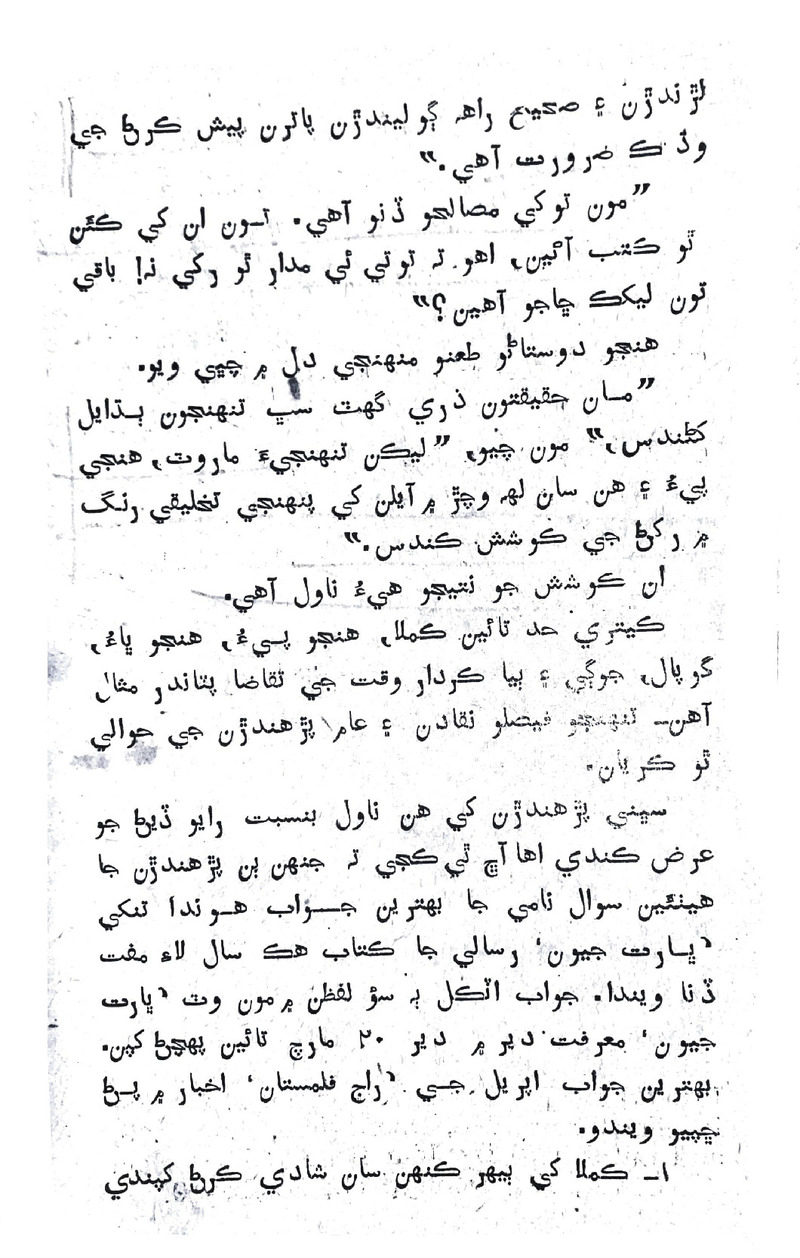 لڙندڙن ۽ صحيح راھ ڳوليندڙن پاترن پيش ڪرڻ جي
وڏ ڪ ضرورت آهي.“
”مون توکي مصالحو ڏنو آهي. تون ان کي ڪئن
ٿو ڪتب آڻين، اهو ته توتي ئي مدار ٿو رکي نہ! باقي
تون ليکڪ ڇاجو آهين؟“
هنجو دوستاڻو طعنو منهنجي دل ۾ چڀي ويو.
”مان حقيقتون ذري گهٽ سڀ تنهنجون ٻڌايل
کڻندس،“ مون چيو، ”ليڪن تنهنجيءَ ماروت، هنجي
پيءُ ۽ هن سان لھ وچڙ ۾ آيلن کي پنهنجي تخليقي رنگ
۾ رکڻ جي ڪوشش ڪندس.“
ان ڪوشش جو نتيجو هيءُ ناول آهي.
ڪيتري حد تائين ڪملا، هنجو پيءُ، هنجو ڀاءُ،
گوپال، جوڳي ۽ ٻيا ڪردار وقت جي تقاضا پٽاندر مثال
آهن۔ تنهنجو فيصلو نقادن ۽ عام پڙهندڙن جي حوالي
ٿو ڪريان.
سڀني پڙهندڙن کي هن ناول بنسبت رايو ڏيڻ جو
عرض ڪندي اها آڇ ٿي ڪجي تہ جنهن بن پڙهندڙن جا
هيٺئين سوال نامي جا بهترين جواب هوندا تنکي
’ڀارت جيون‘ رسالي جا ڪتاب هڪ سال لاءِ مفت
ڏنا ويندا. جواب اٽڪل ٻہ سؤ لفظن ۾ مون وٽ ’ڀارت
جيون‘ معرفت دير ۾ دير ۲۰ مارچ تائين پهچڻ کپن.
بهترين جواب اپريل جي ’راج فلمستان‘ اخبار ۾ پڻ
ڇپيو ويندو.
۱۔ ڪملا کي ٻيهر ڪنهن سان شادي ڪرڻ کپندي